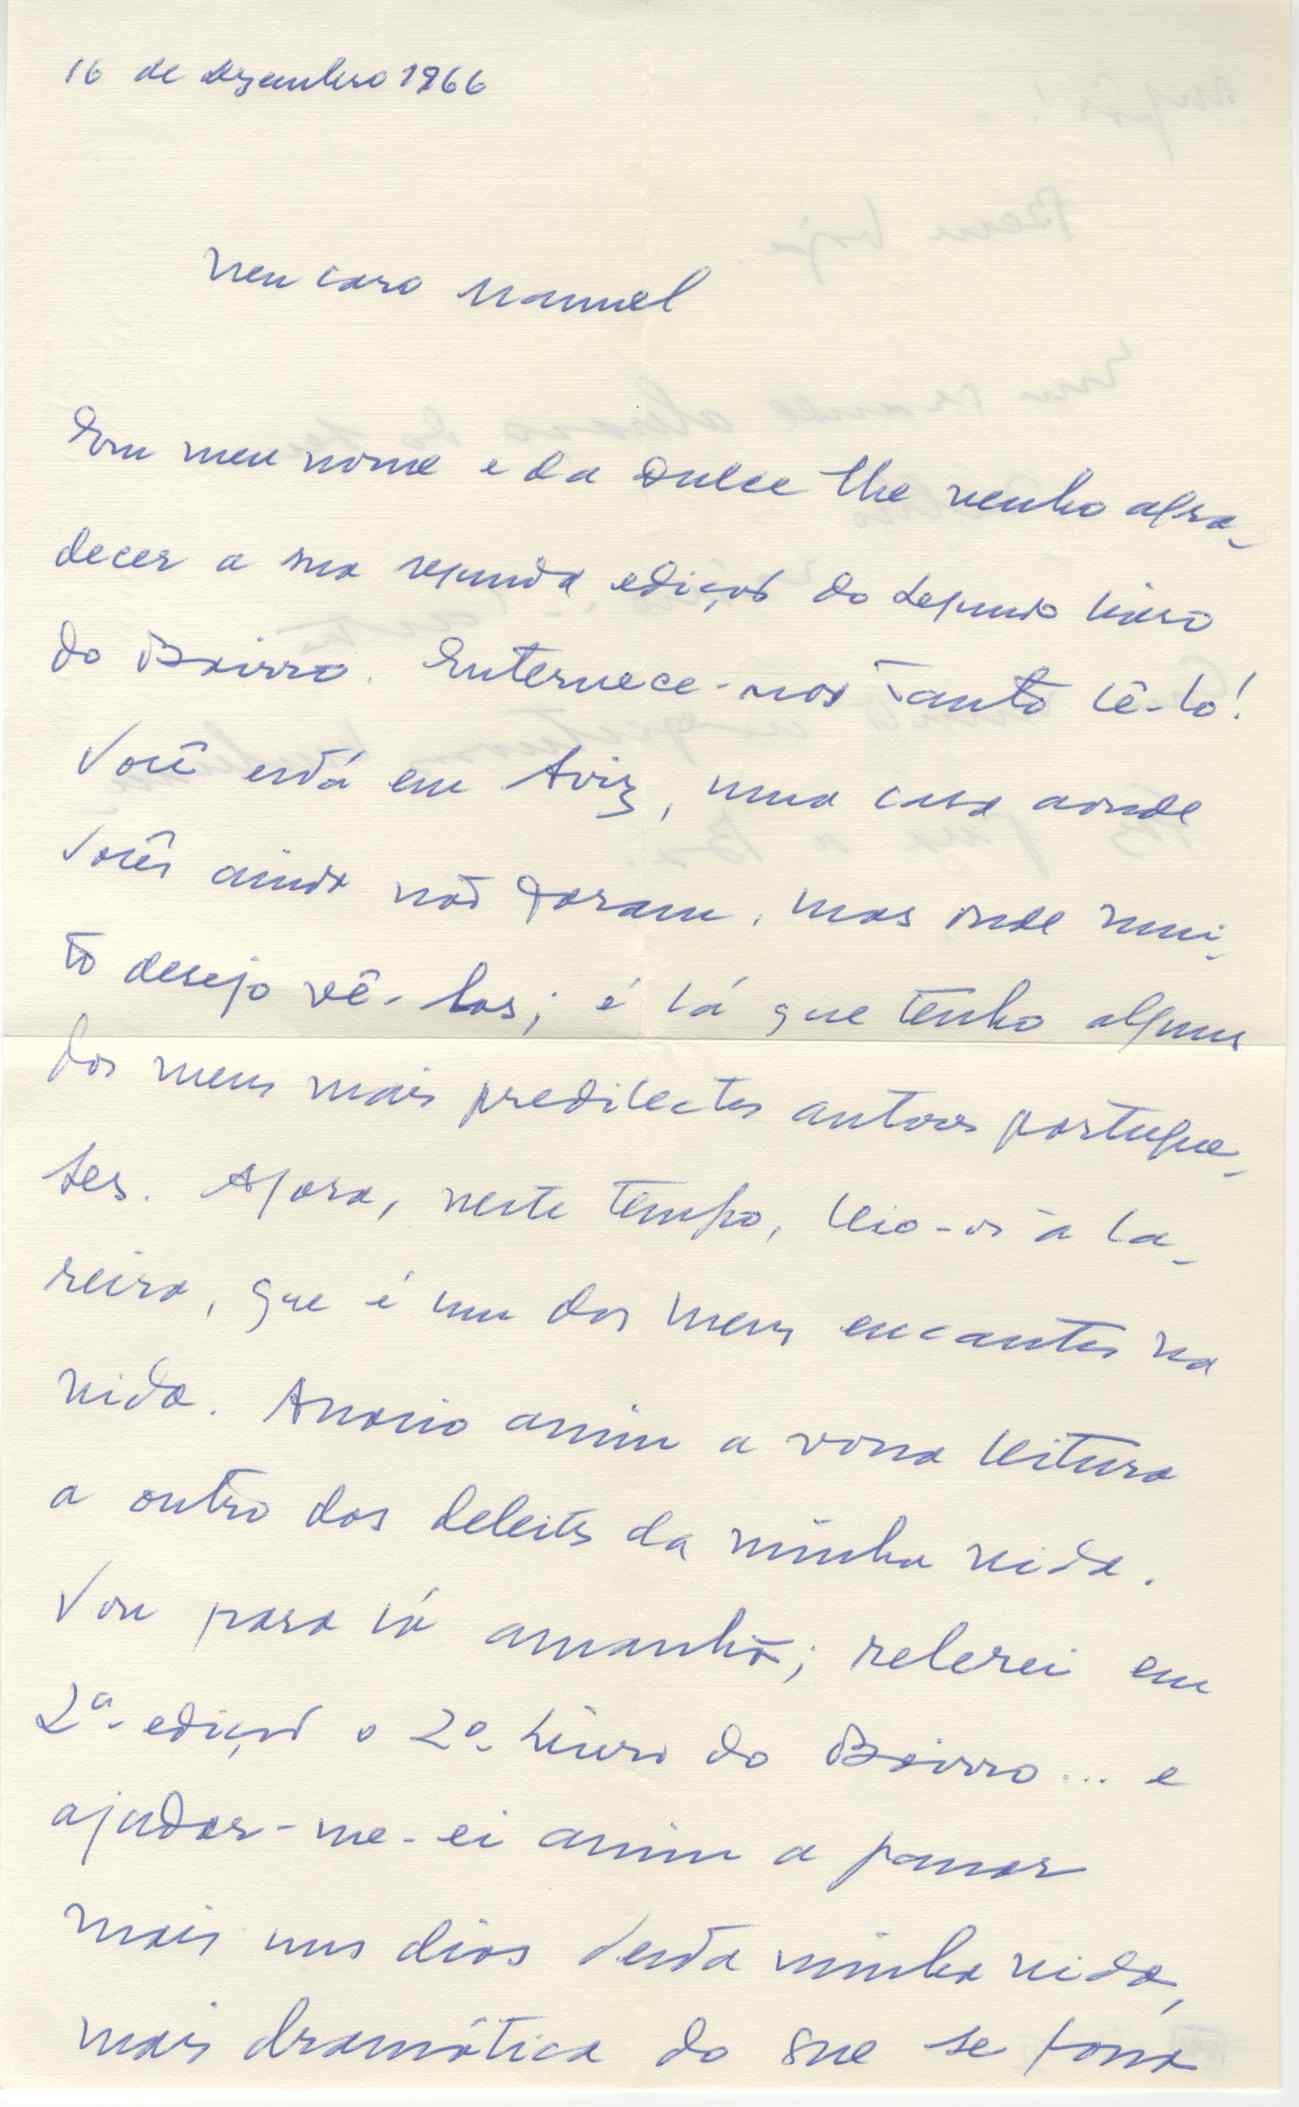 16 de Dezembro 1966
Meu caro Manuel
Em meu nome e da Dulce lhe venho agra-
decer a sua segunda edição do segundo livro
do Bairro. Enternece-nos tanto lê-lo!
Você está em Aviz, uma casa aonde
vocês ainda não foram, mas onde mui-
to desejo vê-los; é lá que tenho alguns
dos meus mais predilectos autores portugue-
ses. Agora, neste tempo, leio-os à la-
reira, que é um dos meus encantos na
vida. Associo assim a vossa leitura
a outro dos deleites da minha vida.
Vou para lá amanhã; relerei em
2ª edição o 2º Livro do Bairro... e
ajudar-me-ei assim a passar
mais uns dias desta minha vida,
mais dramática do que se possa